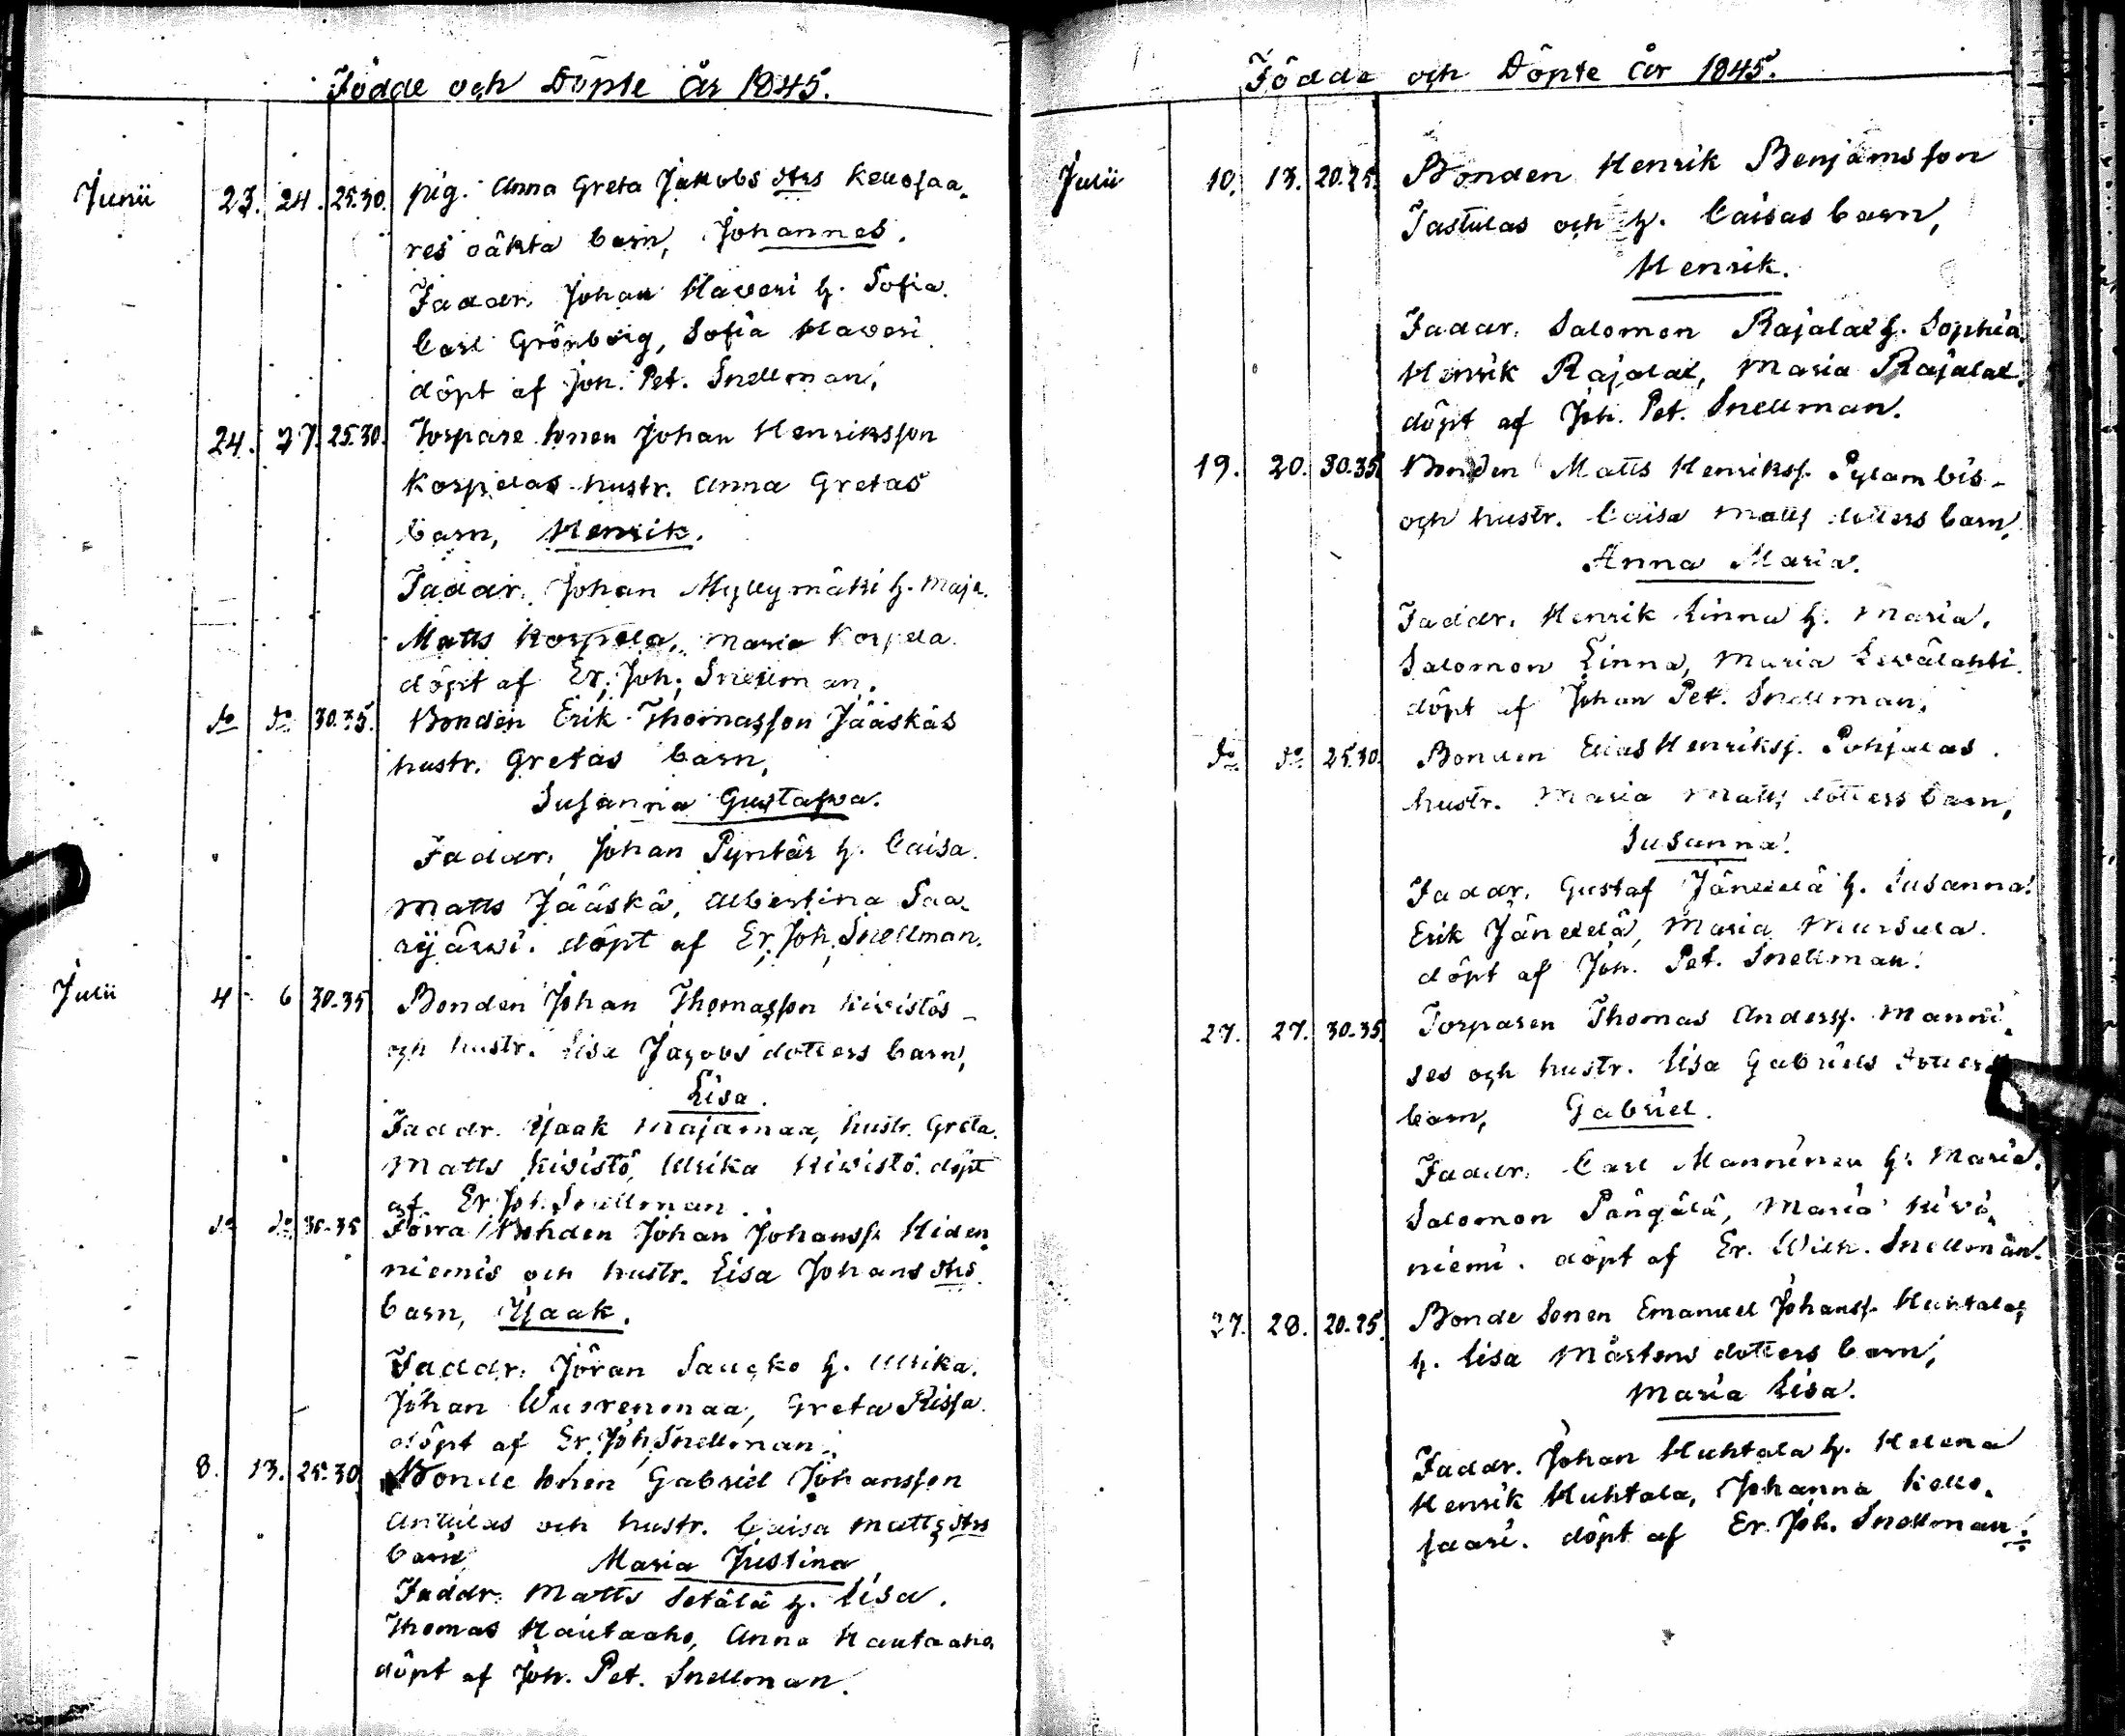 Födde och Döpte År 1845.
Junii 23. 24. 25.30. pig. Anna Greta Jakobs dtrs Kellosaa-
res oäkta barn, Johannes.
Faddr. Johan Haveri h. Sofia.
Carl Grönberg, Sofia Haveri
döpt af Joh. Pet. Snellman.
24. 27. 25.30. Torpare sonen Johan Henriksson
Korpelas hustr. Anna Gretas
barn, Henrik.
Faddr. Johan Myllymäki h. Maja.
Matts Korpela, Maria Korpela.
döpt af Er. Joh. Snellman.
do do 30.35. Bonden Erik Thomasson Jääskäs
hustr. Gretas barn,
Susanna Gustafva.
Faddr. Johan Pyntär h. Caisa.
Matts Jääskä, Albertina Saa-
rijärwi. döpt af Er. Joh. Snellman.
Julii 4 6 30-35 Bonden Johan Thomasson Kivistös
och hustr. Lisa Jacobs dotters barn,
Lisa.
Faddr. Isaak Majamaa, hustr. Greta.
Matts Kivistö, Ulrika Kivistö. döpt
af Er. Joh. Snellman.
do do 30-35 Förra Bonden Johan Johanss. Hiden
niemis och hustr. Lisa Johans dtrs
barn, Isaak.
Faddr. Jöran Saucko h. Ulrika.
Johan Wuorenmaa, Greta Rissa.
döpt af Er. Joh. Snellman.
8. 13. 25.30. Bonde sonen Gabriel Johansson
Anttilas och hustr. Caisa Matts dtrs
barn Maria Justina
Faddr. Matts Setälä h. Lisa.
Thomas Hautaaho, Anna Hautaaho,
döpt af Joh. Pet. Snellman.
Födde och Döpte År 1845.
Julii 10. 13. 20.25. Bonden Henrik Benjamsson
Tastulas och h. Caisas barn,
Henrik.
Faddr. Salomon Rajalae h. Sophia.
Henrik Rajalae, Maria Rajalae.
döpt af Joh. Pet. Snellman.
19. 20. 30.35. Bonden Matts Henrikss. Pylambis-
och hustr. Caisa Matts dotters barn,
Anna Maria.
Faddr. Henrik Linna h. Maria.
Salomon Linna, Maria Levälahti.
döpt af Johan Pet. Snellman.
do do 25.30. Bonden Elias Henrikss. Pohjalas.
hustr. Maria Matts dotters barn,
Susanna.
Faddr. Gustaf Jänellä h. Susanna.
Erik Jänellä, Maria Mursula.
döpt af Joh. Pet. Snellman.
27. 27. 30.35. Torparen Thomas Anderss. Manni-
ses och hustr. Lisa Gabriels dotters
barn, Gabriel.
Faddr. Carl Manninen h. Maria.
Salomon Pångälä, Maria Kivi-
niemi. döpt af Er. Wilh. Snellman.
27. 28. 20.25. Bonde sonen Emanuel Johanss. Huhtalas
h. Lisa Mårtens dotters barn,
Maria Lisa.
Faddr. Johan Huhtala h. Helena
Henrik Huhtala, Johanna Kello-
saari. döpt af Er. Joh. Snellman.